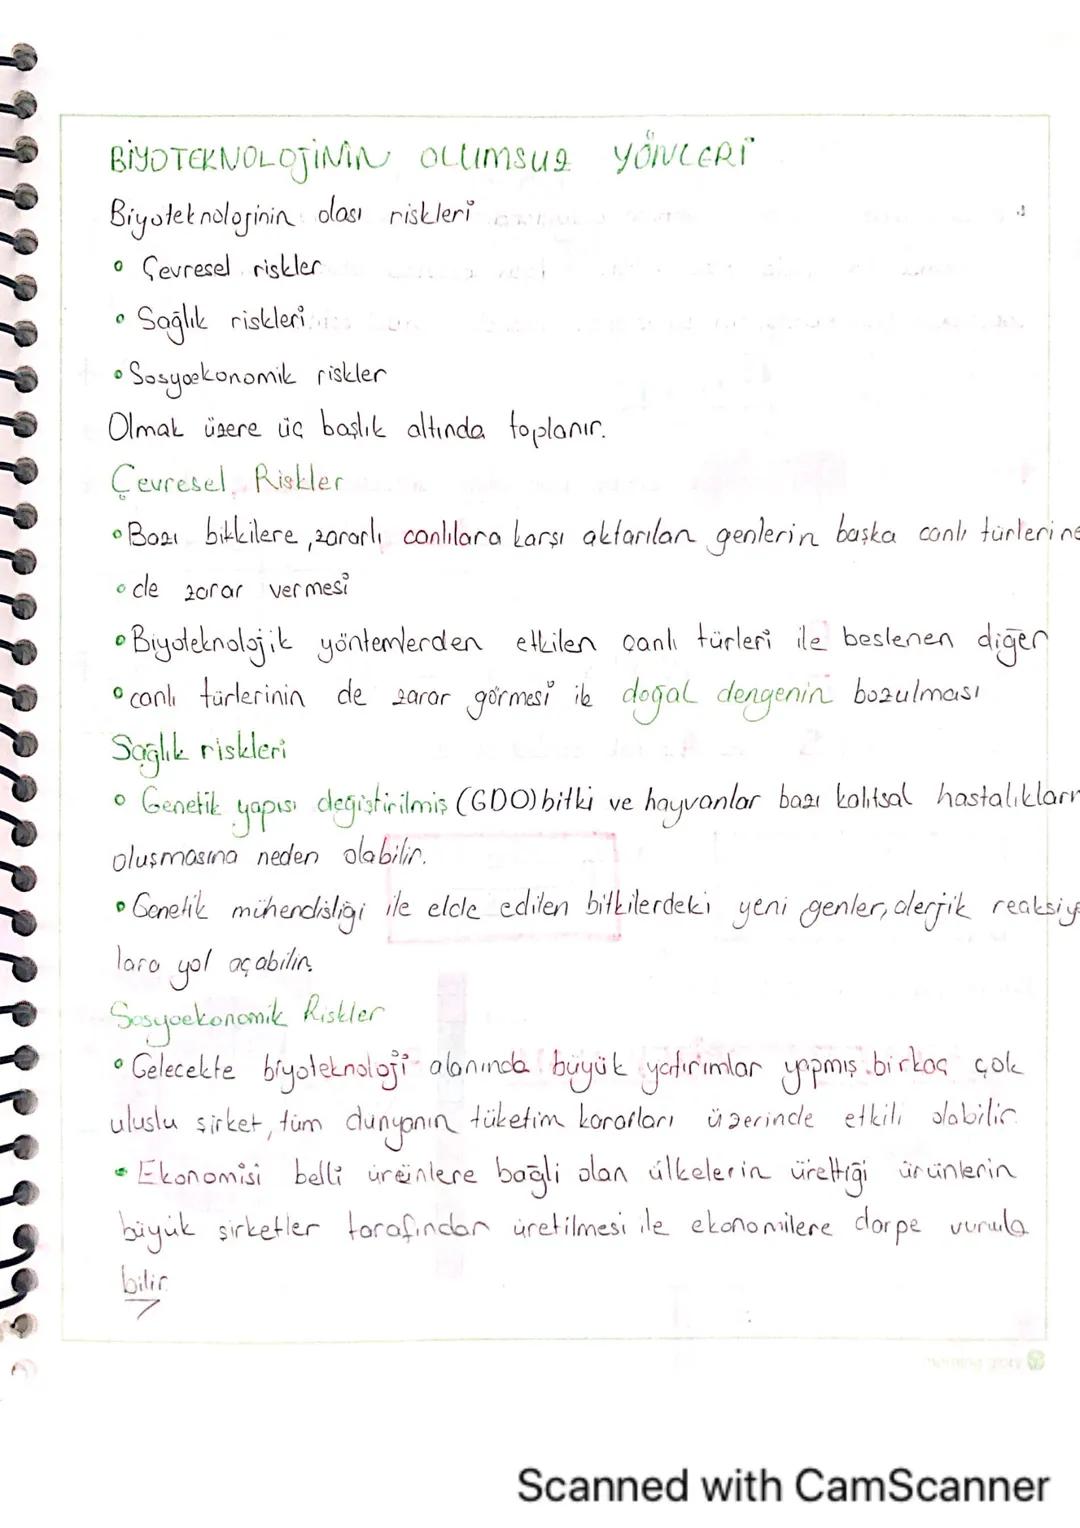 BİYOTEKNOLOJİNİN OLUMSUZ YÖNLERİ
Biyoteknolojinin olası riskleri
• Çevresel riskler
• Sağlık riskleri
• Sosyoekonomik riskler
Olmak üzere üç başlık altında toplanır.
Çevresel Riskler
• Bazı bitkilere, zararlı canlılara karşı aktarılan genlerin başka canlı türlerine
• de zarar vermesi
• Biyoteknolojik yöntemlerden etkilen canlı türleri ile beslenen diğer
• canlı türlerinin de zarar görmesi ile doğal dengenin bozulması
Sağlık riskleri
• Genetik yapısı değiştirilmiş (GDO) bitki ve hayvanlar bazı kalıtsal hastalıkların
oluşmasına neden olabilir.
• Genetik mühendisliği ile elde edilen bitkilerdeki yeni genler, alerjik reaksiyo
lara yol açabilir.
Sosyoekonomik Riskler
• Gelecekte biyoteknoloji alanında büyük yatırımlar yapmış birkaç çok
uluslu şirket, tüm dünyanın tüketim kararları üzerinde etkili olabilir.
• Ekonomisi belli ürünlere bağlı olan ülkelerin ürettiği ürünlerin
büyük şirketler tarafından üretilmesi ile ekonomilere darpe vurula
bilir.
Scanned with CamScanner